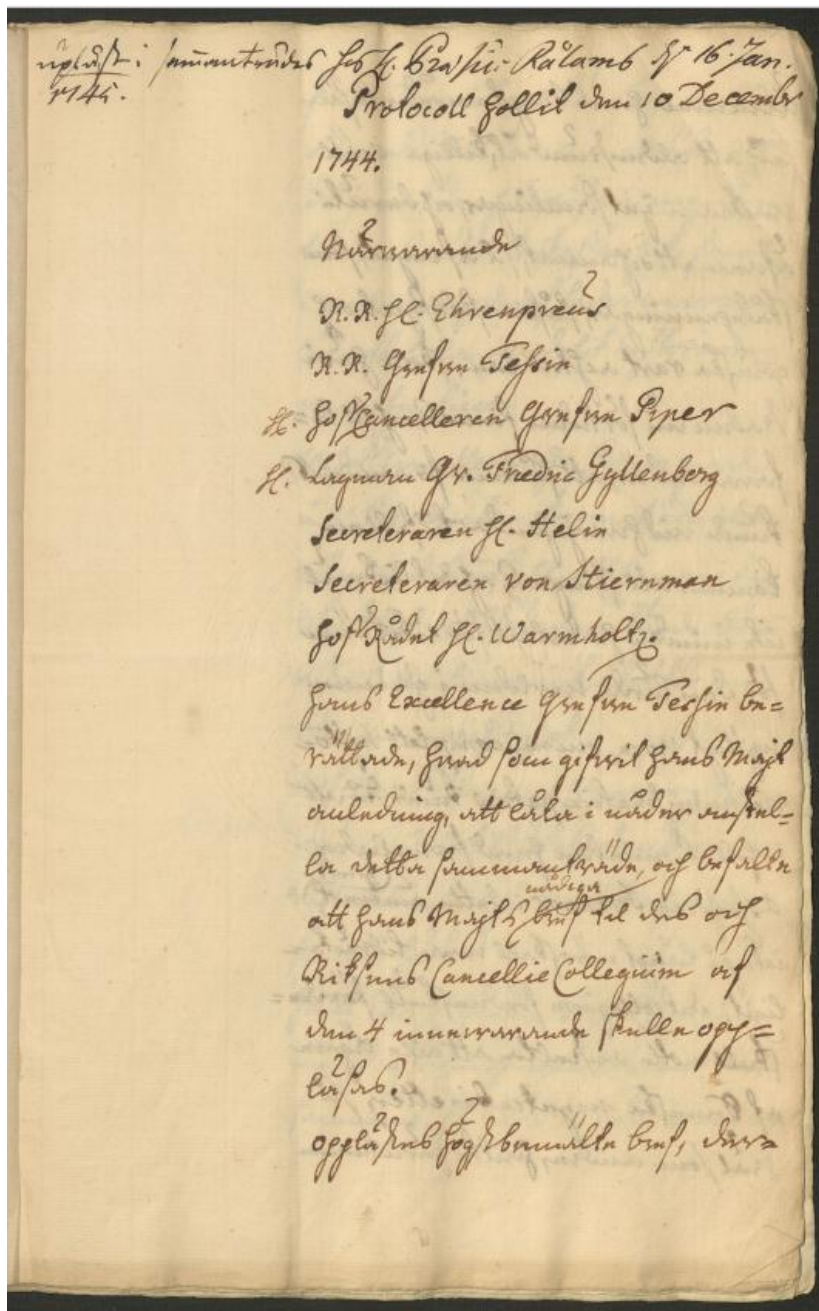 upläst i sammanträdet hos H. Præsid. Rålamb d. 16. Jan.
1745.
Protocoll hollit den 10 December
1744.
Närwarande
R.R. H. Ehrenpreus
R.R. Grefwe Tessin
H. HoffCancelleren Grefwe Piper
H. Lagman Gr. Fredric Gyllenborg
Secreteraren H. Helin
Secreteraren von Stiernman
HoffRådet H. Warmholtz.
Hans Excellence Grefwe Tessin be=
rättade, hwad som gifwit Hans Majt
anledning, att låta i nåder anstel=
la detta sammanträde, och befalte
nådiga
att Hans Majts bref til des och
Riksens Cancellie Collegium af
den 4 innewarande skulle opp=
läsas.
Opplästes högstbemälte bref, der=